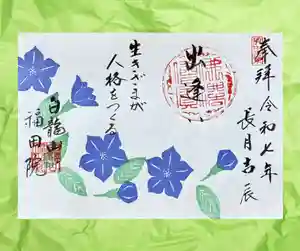 奉拝 令和七年
長月吉辰
出逢い
生きざまが
人格をつくる
白龍山
福田院